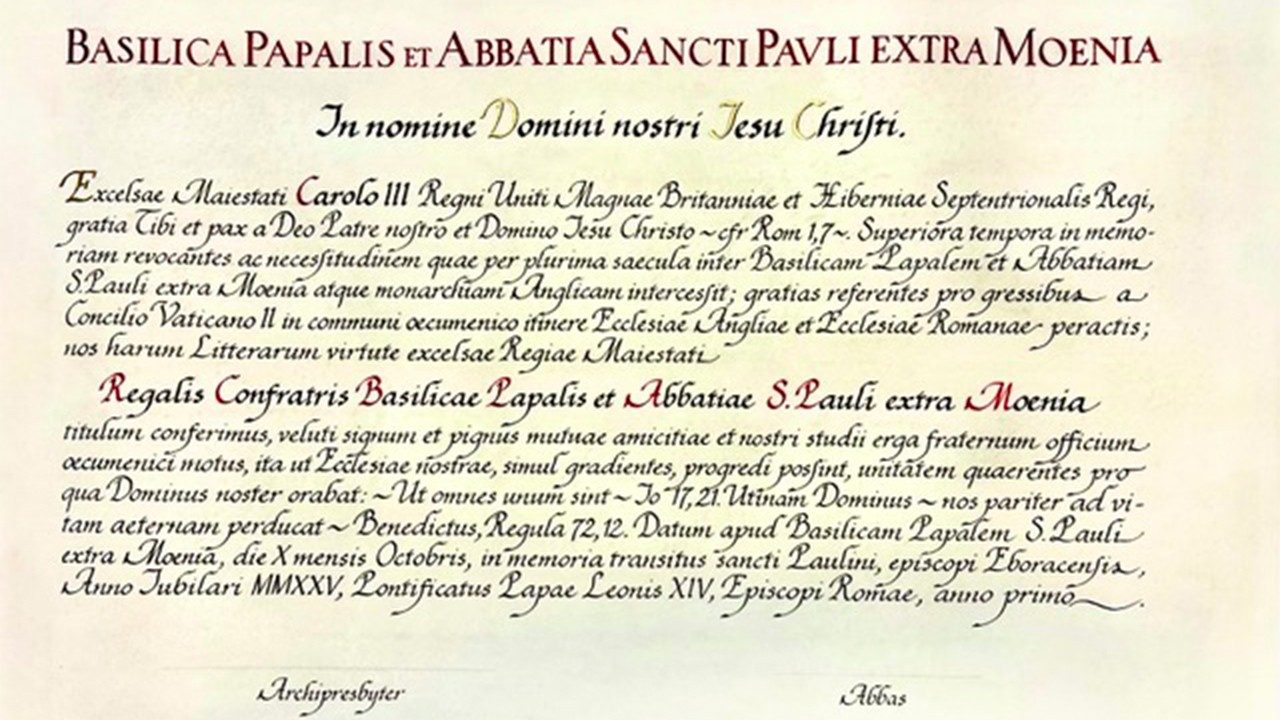 BASILICA PAPALIS ET ABBATIA SANCTI PAVLI EXTRA MOENIA
In nomine Domini nostri Iesu Chriſti.
Excelsae Maiestati Carolo III Regni Uniti Magnae Britanniae et Hiberniae Septentrionalis Regi,
gratia Tibi et pax a Deo Patre noſtro et Domino Iesu Christo ~cfr Rom 1,7~. Superiora tempora in memo-
riam revocantes ac neceſsitudinem quae per plurima saecula inter Basilicam Papalem et Abbatiam
S.Pauli extra Moenia atque monarchiam Anglicam interceſsit; gratias referentes pro gressibus a
Concilio Vaticano II in communi œcumenico itinere Ecclesiae Angliae et Ecclesiae Romanae peractis;
nos harum Litterarum virtute excelsae Regiae Maiestati
Regalis Confratris Basilicae Papalis et Abbatiae S.Pauli extra Moenia
titulum conferimus, veluti signum et pignus mutuae amicitiae et nostri studii erga fraternum officium
œcumenici motus, ita ut Ecclesiae nostrae, simul gradientes, progredi poſsint, unitatem quaerentes pro
qua Dominus noster orabat: ~Ut omnes unum sint~ Io 17,21. Utinam Dominus ~ nos pariter ad vi-
tam aeternam perducat ~ Benedictus, Regula 72,12. Datum apud Basilicam Papalem S.Pauli
extra Moenia, die X mensis Octobris, in memoria transitus sancti Paulini, episcopi Eboracenſis,
Anno Iubilari MMXXV, Pontificatus Papae Leonis XIV, Episcopi Romae, anno primo.
Archipresbyter
Abbas